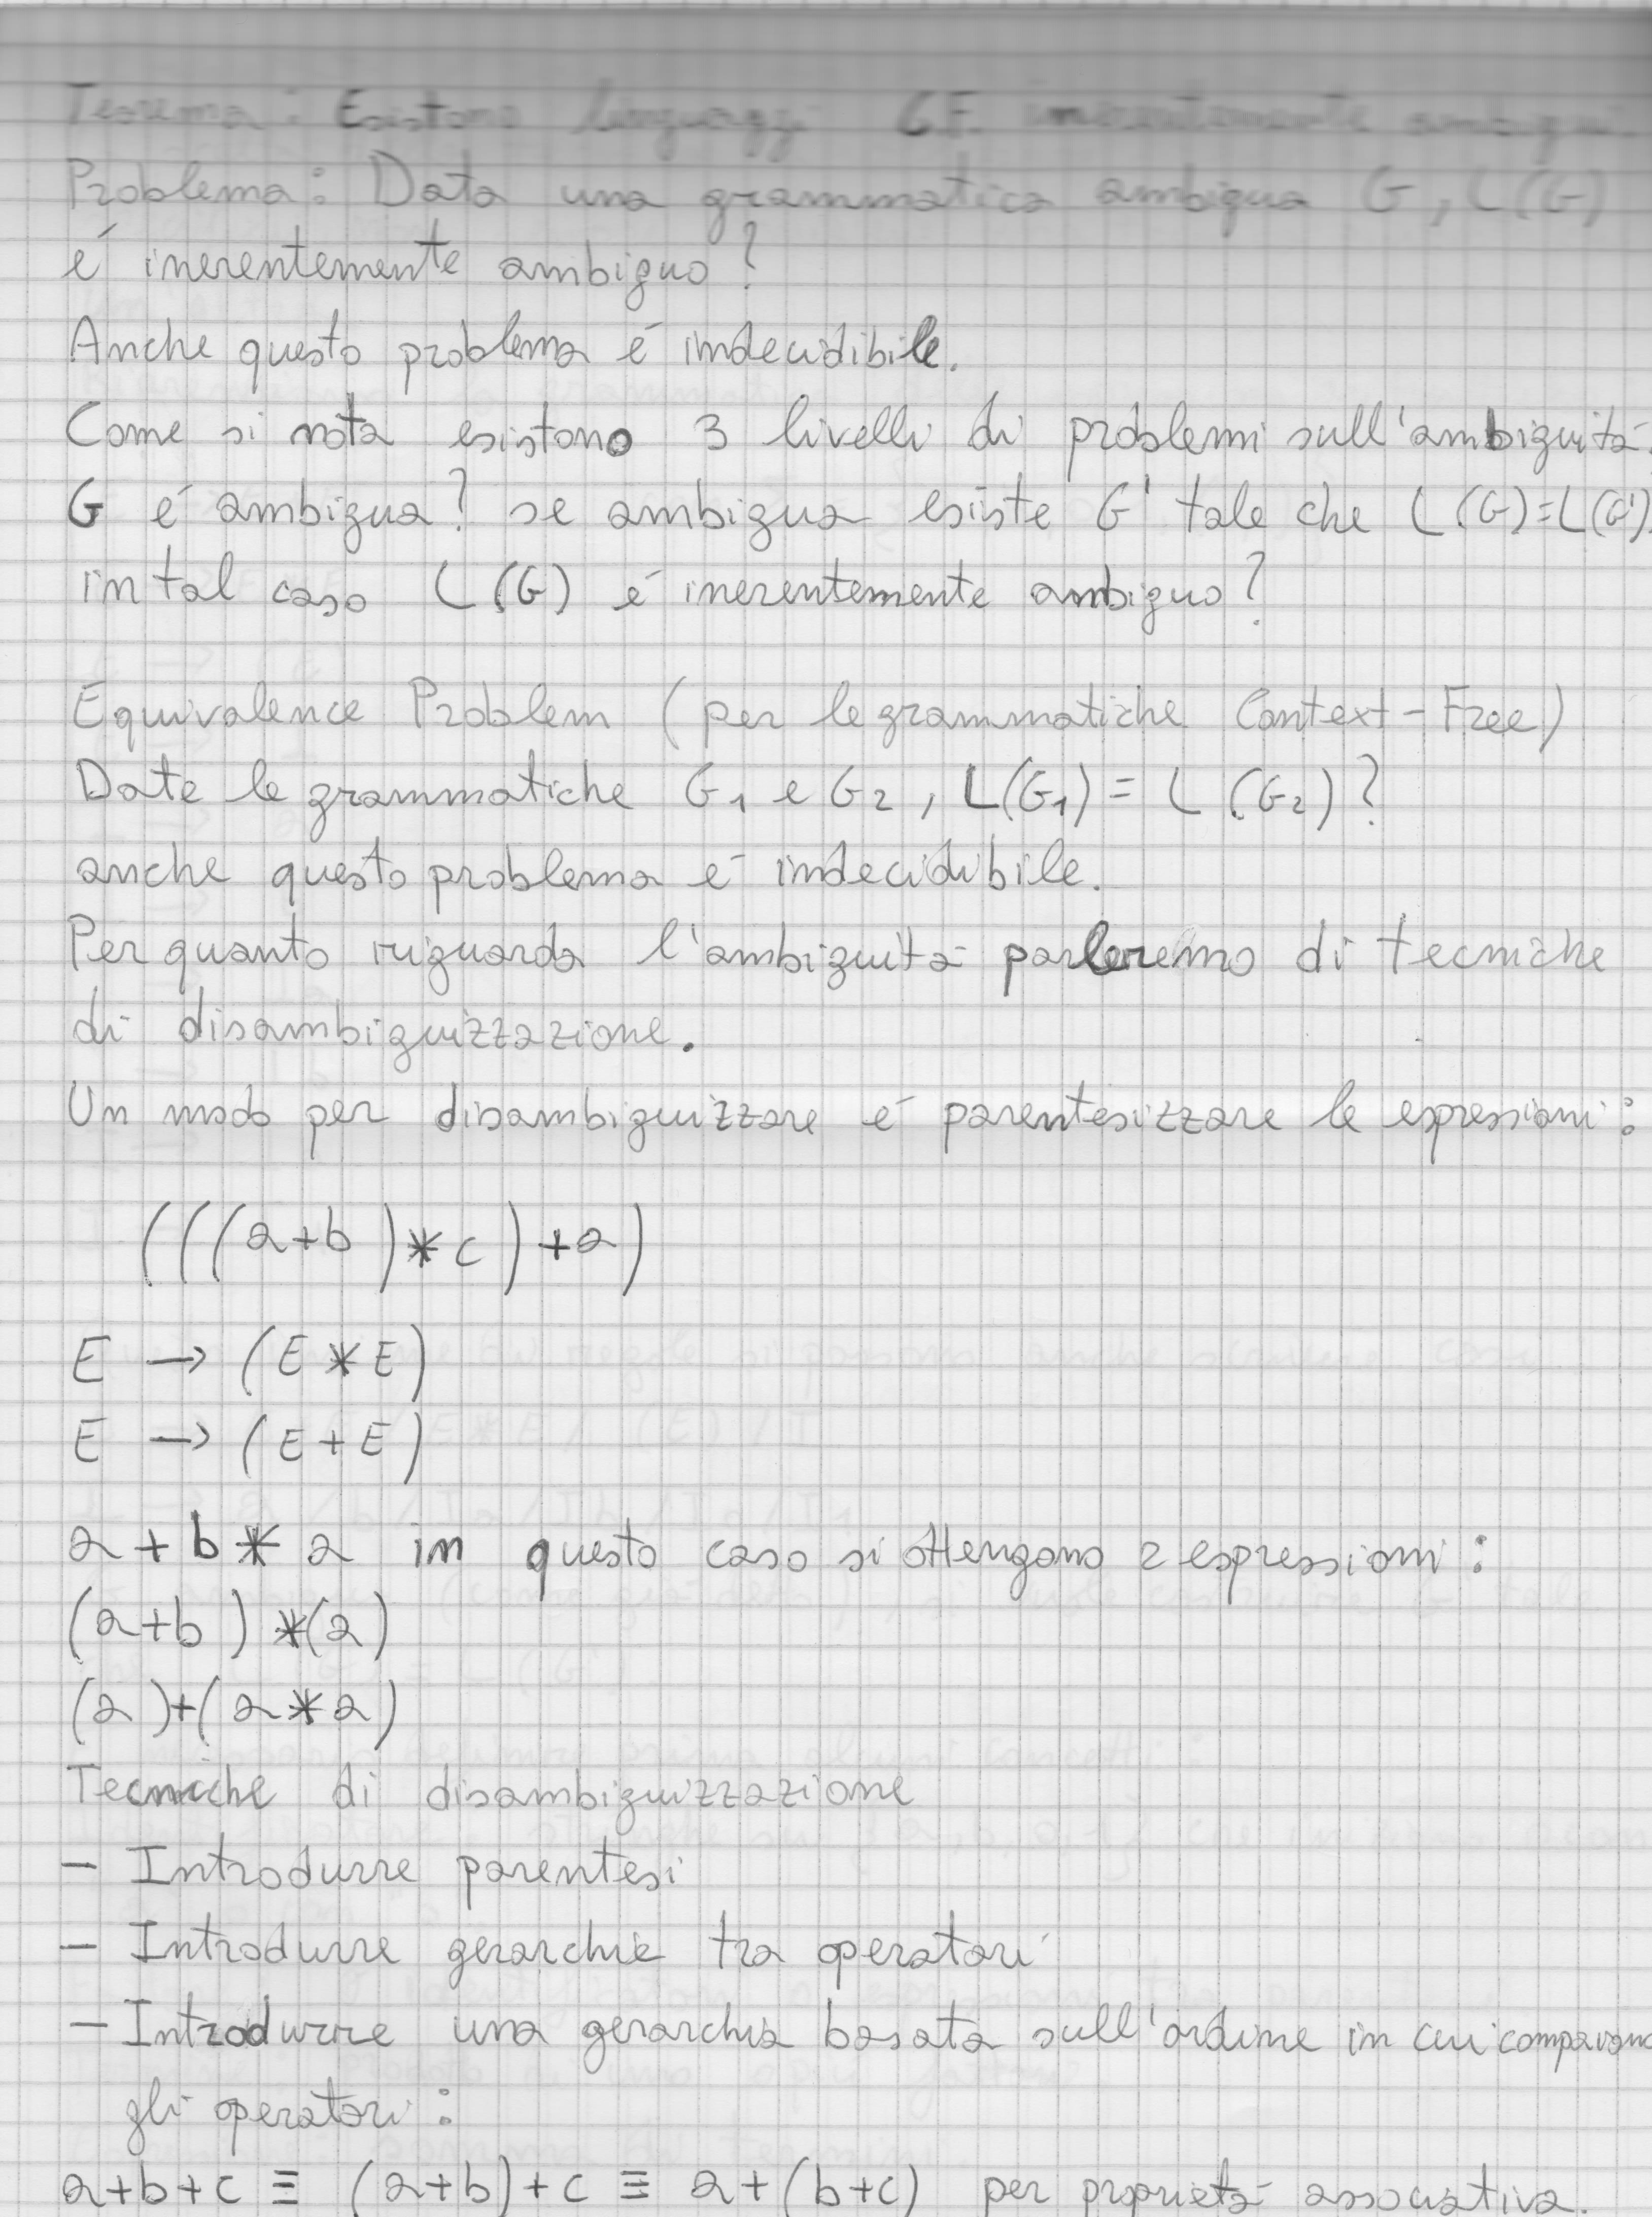 Teorema: Esistono linguaggi C.F. inerentemente ambigui
Problema: Data una grammatica ambigua G, L(G)
é inerentemente ambiguo?
Anche questo problema é indecidibile.
Come si nota esistono 3 livelli di problemi sull'ambiguitá.
G é ambigua? se ambigua esiste G' tale che L(G)=L(G').
in tal caso L(G) é inerentemente ambiguo?
Equivalence Problem (per le grammatiche Context-Free)
Date le grammatiche G1 e G2, L(G1) = L(G2)?
anche questo problema é indecidibile.
Per quanto riguarda l'ambiguitá parleremo di tecniche
di disambiguizzazione.
Un modo per disambiguizzare é parentesizzare le espressioni:
(((a+b)*c)+a)
E → (E*E)
E → (E+E)
a+b*a in questo caso si ottengono 2 espressioni:
(a+b)*(a)
(a)+(a*a)
Tecniche di disambiguizzazione
- Introdurre parentesi
- Introdurre gerarchie tra operatori
- Introdurre una gerarchia basata sull'ordine in cui compaiono
gli operatori:
a+b+c ≡ (a+b)+c ≡ a+(b+c) per proprietá associativa.